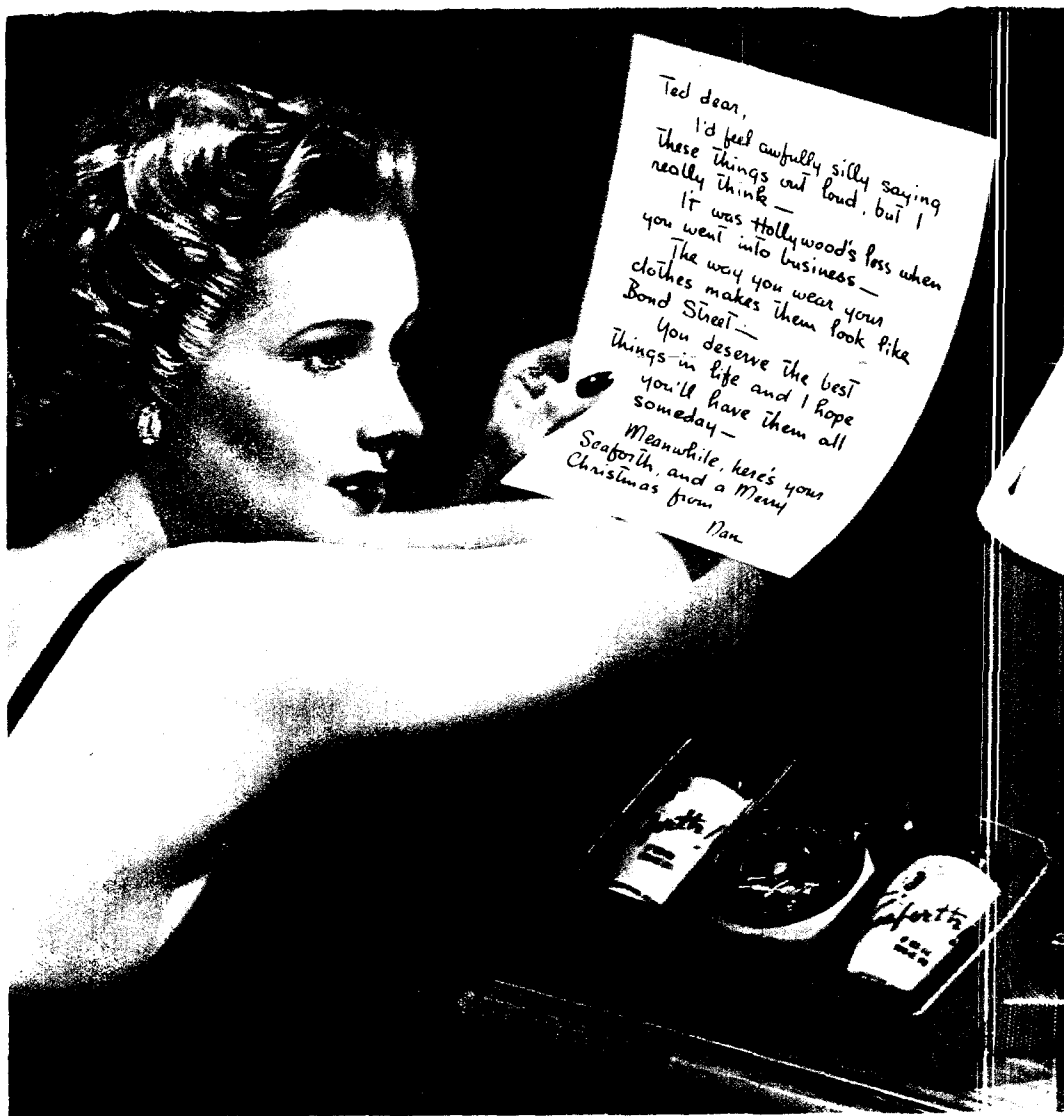 Ted dear,
I'd feel awfully silly saying
these things out loud, but I
really think—
It was Hollywood's loss when
you went into business—
The way you wear your
clothes makes them look like
Bond Street—
You deserve the best
things in life and I hope
you'll have them all
someday—
Meanwhile, here's your
Seaforth, and a Merry
Christmas from
Nan
Seaforth
FOR
MEN